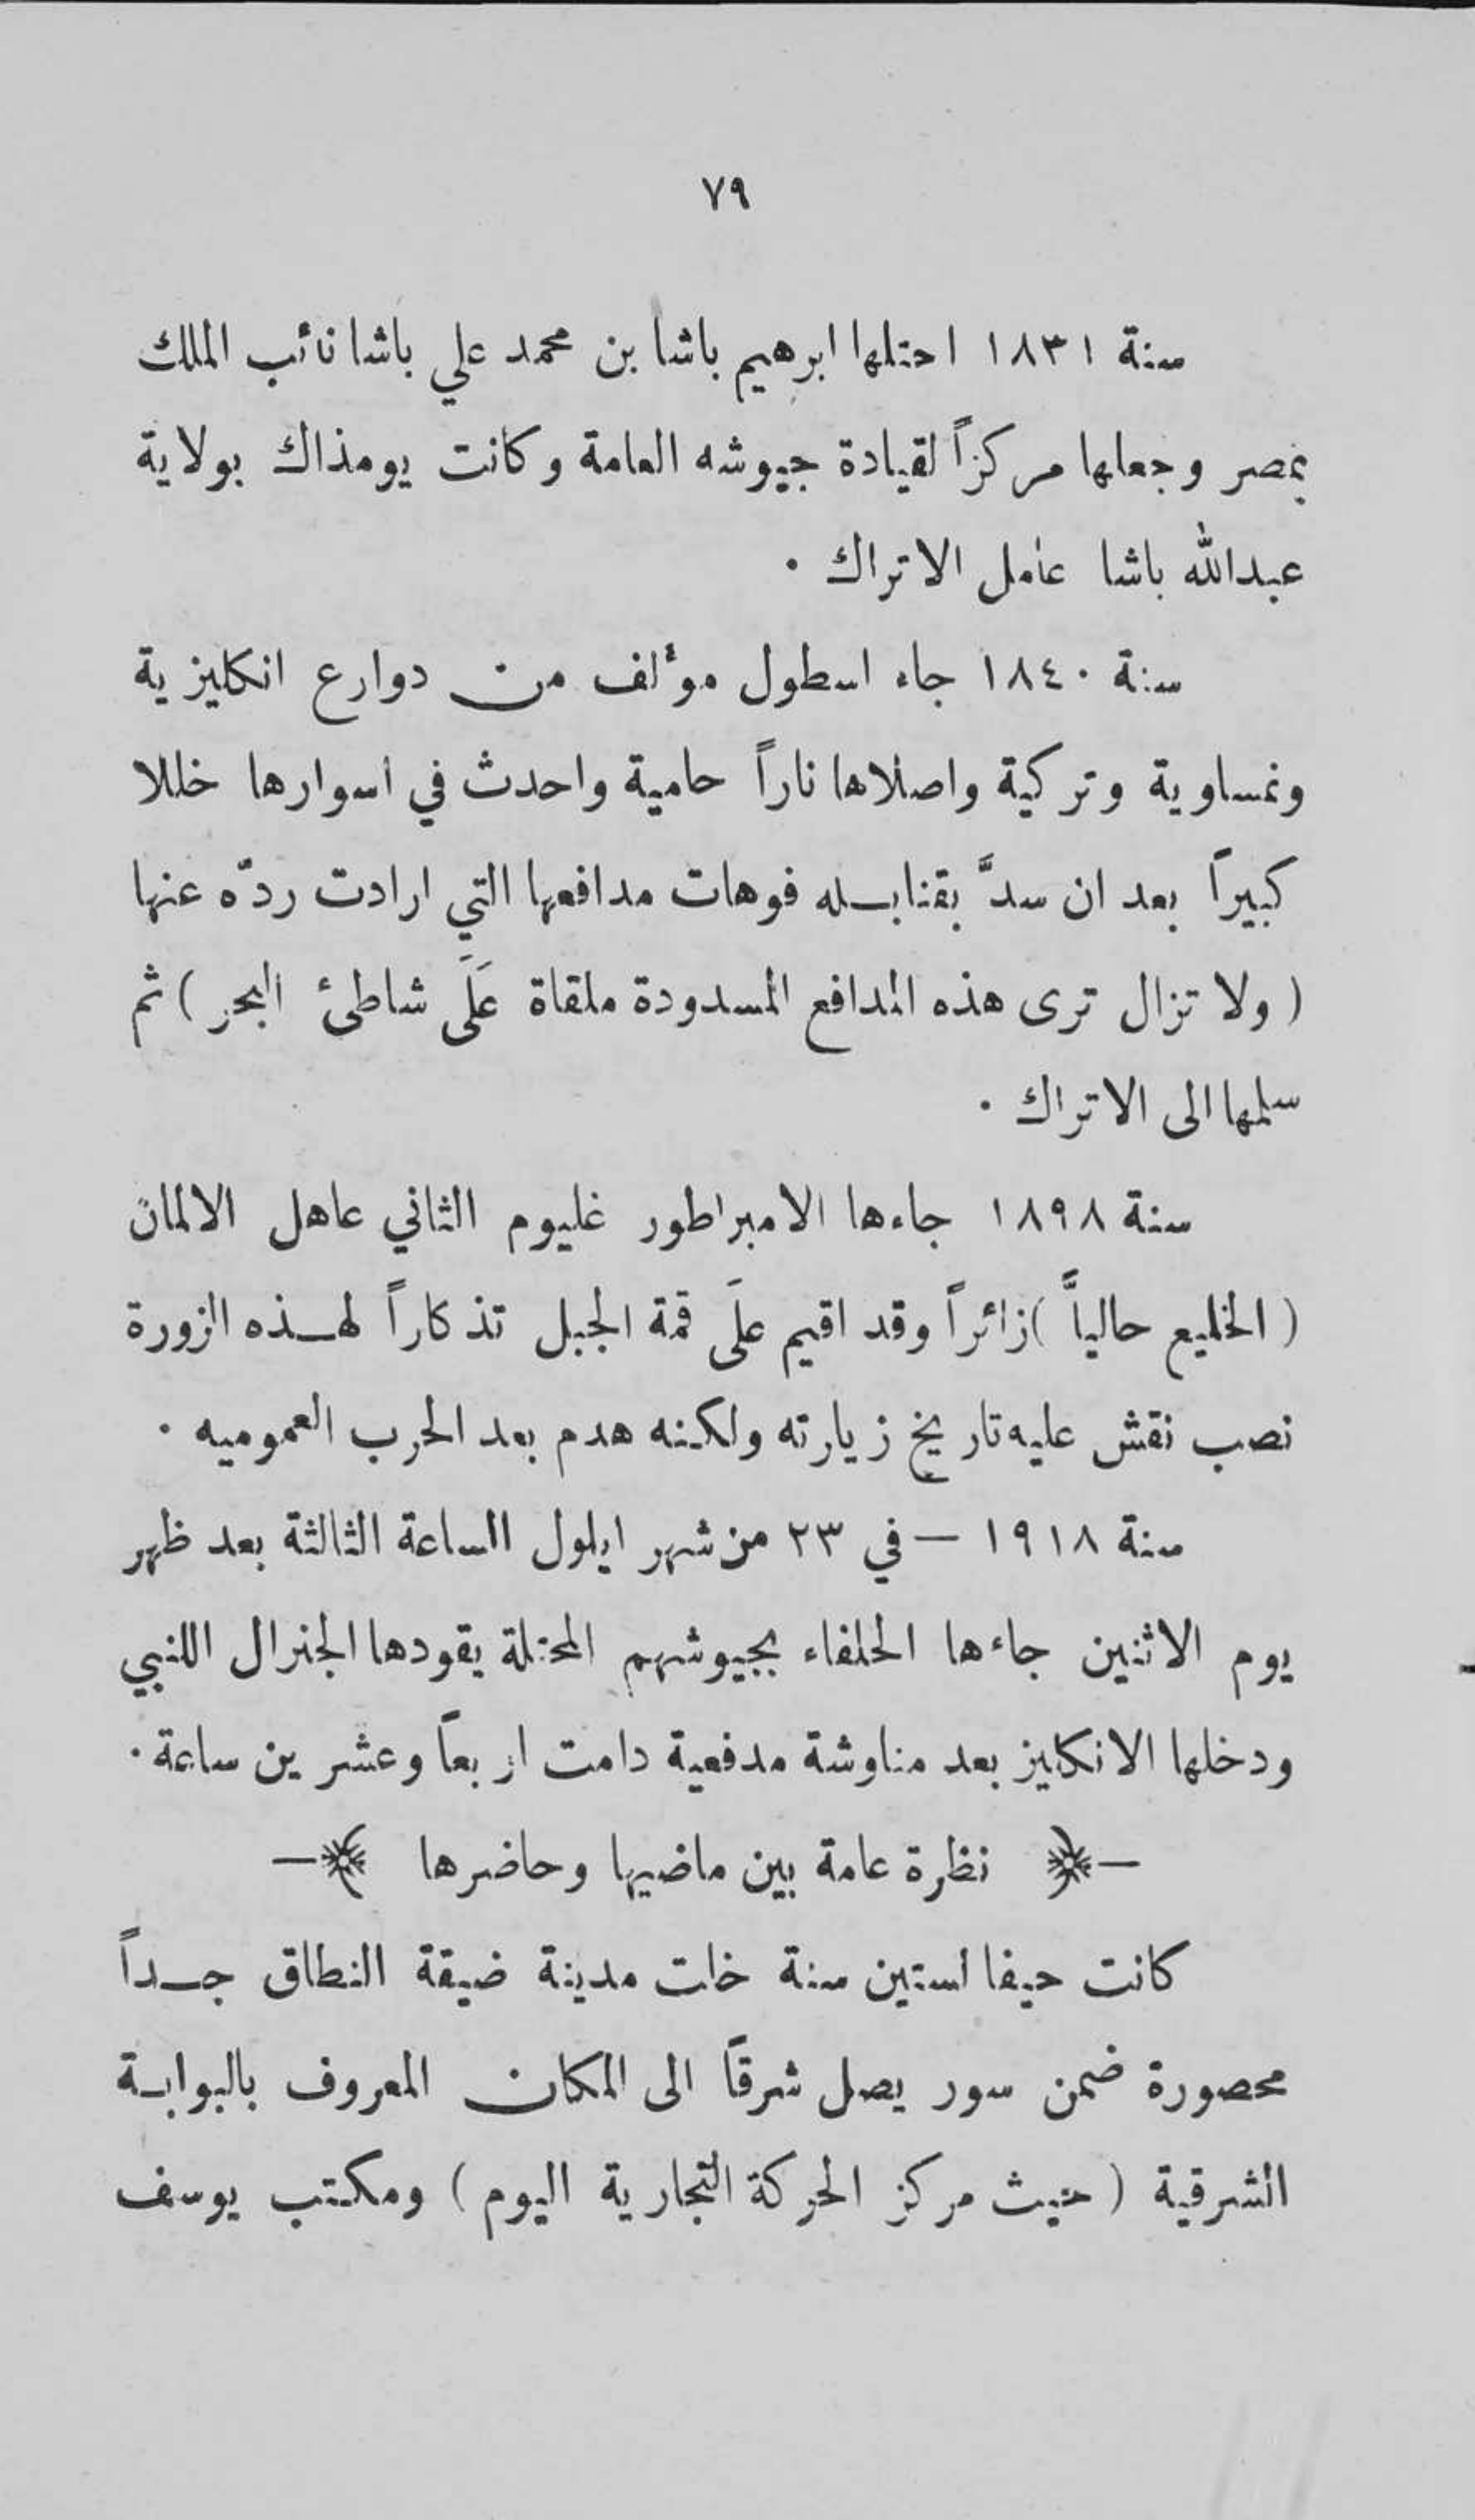 ٧٩
سنة ١٨٣١ احتلها ابرهيم باشا بن محمد علي باشا نائب الملك
بمصر وجعلها مركزاً لقيادة جيوشه العامة وكانت يومذاك بولاية
عبدالله باشا عامل الاتراك ٠
سنة ١٨٤٠ جاء اسطول موٴلف من دوارع انكليزية
ونمساوية وتركية واصلاها ناراً حامية واحدث في اسوارها خللا
كبيراً بعد ان سدَّ بقنابله فوهات مدافعها التي ارادت ردّه عنها
( ولا تزال ترى هذه المدافع المسدودة ملقاة عَلَى شاطئ البحر ) ثم
سلمها الى الاتراك ٠
سنة ١٨٩٨ جاءها الامبراطور غليوم الثاني عاهل الالمان
( الخليع حالياً ) زائراً وقد اقيم علَى قمة الجبل تذكاراً لهـذه الزورة
نصب نقش عليه تاريخ زيارته ولكنه هدم بعد الحرب العموميه ٠
سنة ١٩١٨ – في ٢٣ من شهر ايلول الساعة الثالثة بعد ظهر
يوم الاثنين جاءها الحلفاء بجيوشهم المحتلة يقودها الجنرال اللنبي
ودخلها الانكليز بعد مناوشة مدفعية دامت اربعاً وعشرين ساعة ٠
نظرة عامة بين ماضيها وحاضرها
كانت حيفا لستين سنة خلت مدينة ضيقة النطاق جـداً
محصورة ضمن سور يصل شرقاً الى المكان المعروف بالبوابـة
الشرقية ( حيث مركز الحركة التجارية اليوم ) ومكتب يوسف